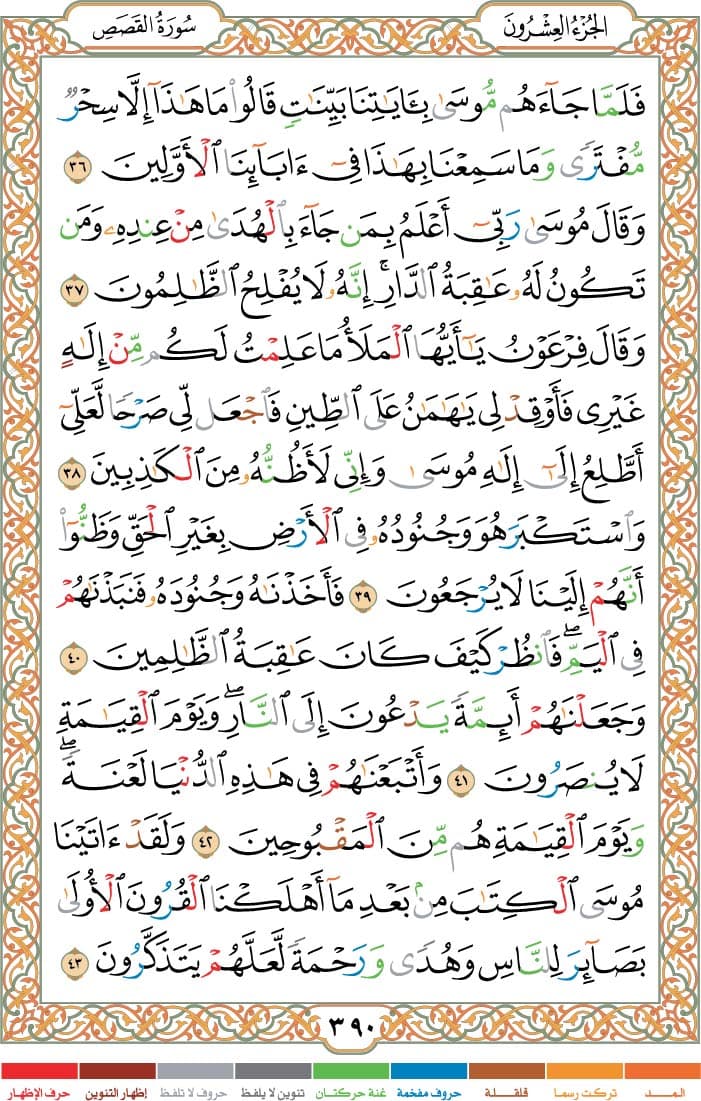 الجُزْءُ العِشْرُونَ
سُورَةُ القَصَصِ
فَلَمَّا جَآءَهُم مُّوسَىٰ بِـَٔايَـٰتِنَا بَيِّنَـٰتٍ قَالُوا۟ مَا هَـٰذَآ إِلَّا سِحْرٌ
مُّفْتَرًى وَمَا سَمِعْنَا بِهَـٰذَا فِىٓ ءَابَآئِنَا ٱلْأَوَّلِينَ ٣٦
وَقَالَ مُوسَىٰ رَبِّىٓ أَعْلَمُ بِمَن جَآءَ بِٱلْهُدَىٰ مِنْ عِندِهِۦ وَمَن
تَكُونُ لَهُۥ عَـٰقِبَةُ ٱلدَّارِ ۖ إِنَّهُۥ لَا يُفْلِحُ ٱلظَّـٰلِمُونَ ٣٧
وَقَالَ فِرْعَوْنُ يَـٰٓأَيُّهَا ٱلْمَلَأُ مَا عَلِمْتُ لَكُم مِّنْ إِلَـٰهٍ
غَيْرِى فَأَوْقِدْ لِى يَـٰهَـٰمَـٰنُ عَلَى ٱلطِّينِ فَٱجْعَل لِّى صَرْحًا لَّعَلِّىٓ
أَطَّلِعُ إِلَىٰٓ إِلَـٰهِ مُوسَىٰ وَإِنِّى لَأَظُنُّهُۥ مِنَ ٱلْكَـٰذِبِينَ ٣٨
وَٱسْتَكْبَرَ هُوَ وَجُنُودُهُۥ فِى ٱلْأَرْضِ بِغَيْرِ ٱلْحَقِّ وَظَنُّوٓا۟
أَنَّهُمْ إِلَيْنَا لَا يُرْجَعُونَ ٣٩ فَأَخَذْنَـٰهُ وَجُنُودَهُۥ فَنَبَذْنَـٰهُمْ
فِى ٱلْيَمِّ ۖ فَٱنظُرْ كَيْفَ كَانَ عَـٰقِبَةُ ٱلظَّـٰلِمِينَ ٤٠
وَجَعَلْنَـٰهُمْ أَئِمَّةً يَدْعُونَ إِلَى ٱلنَّارِ ۖ وَيَوْمَ ٱلْقِيَـٰمَةِ
لَا يُنصَرُونَ ٤١ وَأَتْبَعْنَـٰهُمْ فِى هَـٰذِهِ ٱلدُّنْيَا لَعْنَةً ۖ
وَيَوْمَ ٱلْقِيَـٰمَةِ هُم مِّنَ ٱلْمَقْبُوحِينَ ٤٢ وَلَقَدْ ءَاتَيْنَا
مُوسَى ٱلْكِتَـٰبَ مِنۢ بَعْدِ مَآ أَهْلَكْنَا ٱلْقُرُونَ ٱلْأُولَىٰ
بَصَآئِرَ لِلنَّاسِ وَهُدًى وَرَحْمَةً لَّعَلَّهُمْ يَتَذَكَّرُونَ ٤٣
٣٩٠
المــد تركت رسما قلقلة حروف مفخمة غنة حركتان تنوين لا يلفظ حروف لا تلفظ إظهار التنوين حرف الإظهار